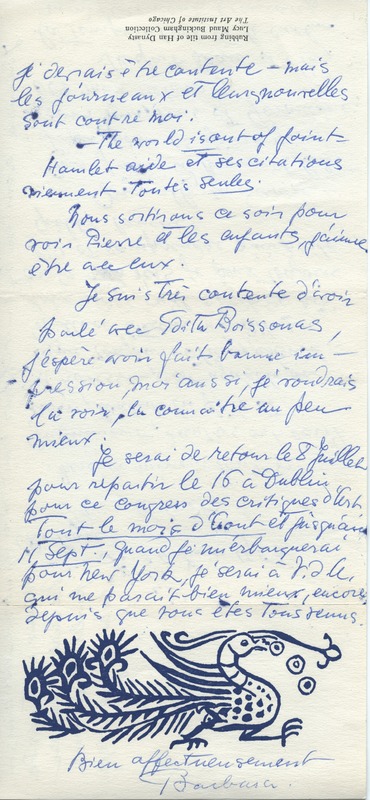 Rubbing from tile of Han Dynasty
Lucy Maud Buckingham Collection
The Art Institute of Chicago
je devrais être contente – mais
les journeaux et leurs nouvelles
sont contre moi.
– The world is out of joint –
Hamlet aide et ses citations
viennent toutes seules.
Nous sortirons ce soir pour
voir Pierre et les enfants, j'aime
être avec eux.
Je suis très contente d'avoir
parlé avec Edith Boissonas,
j'espère avoir fait bonne im-
pression, moi aussi, je voudrais
la voir, la connaître un peu
mieux.
Je serai de retour le 8 juillet
pour repartir le 16 à Dublin
pour ce congress des critiques d'art.
Tout le mois d'Aout et jusqu'au
11 Sept., quand je m'erbarquerai
pour New York, je serai à
qui me parait bien mieux, encore,
depuis que vous êtes tous
Bien affectueusement
Barbara.